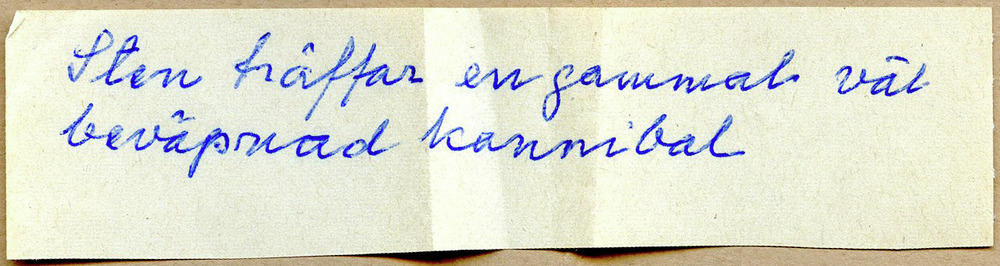 Sten träffar en gammal väl
beväpnad kannibal